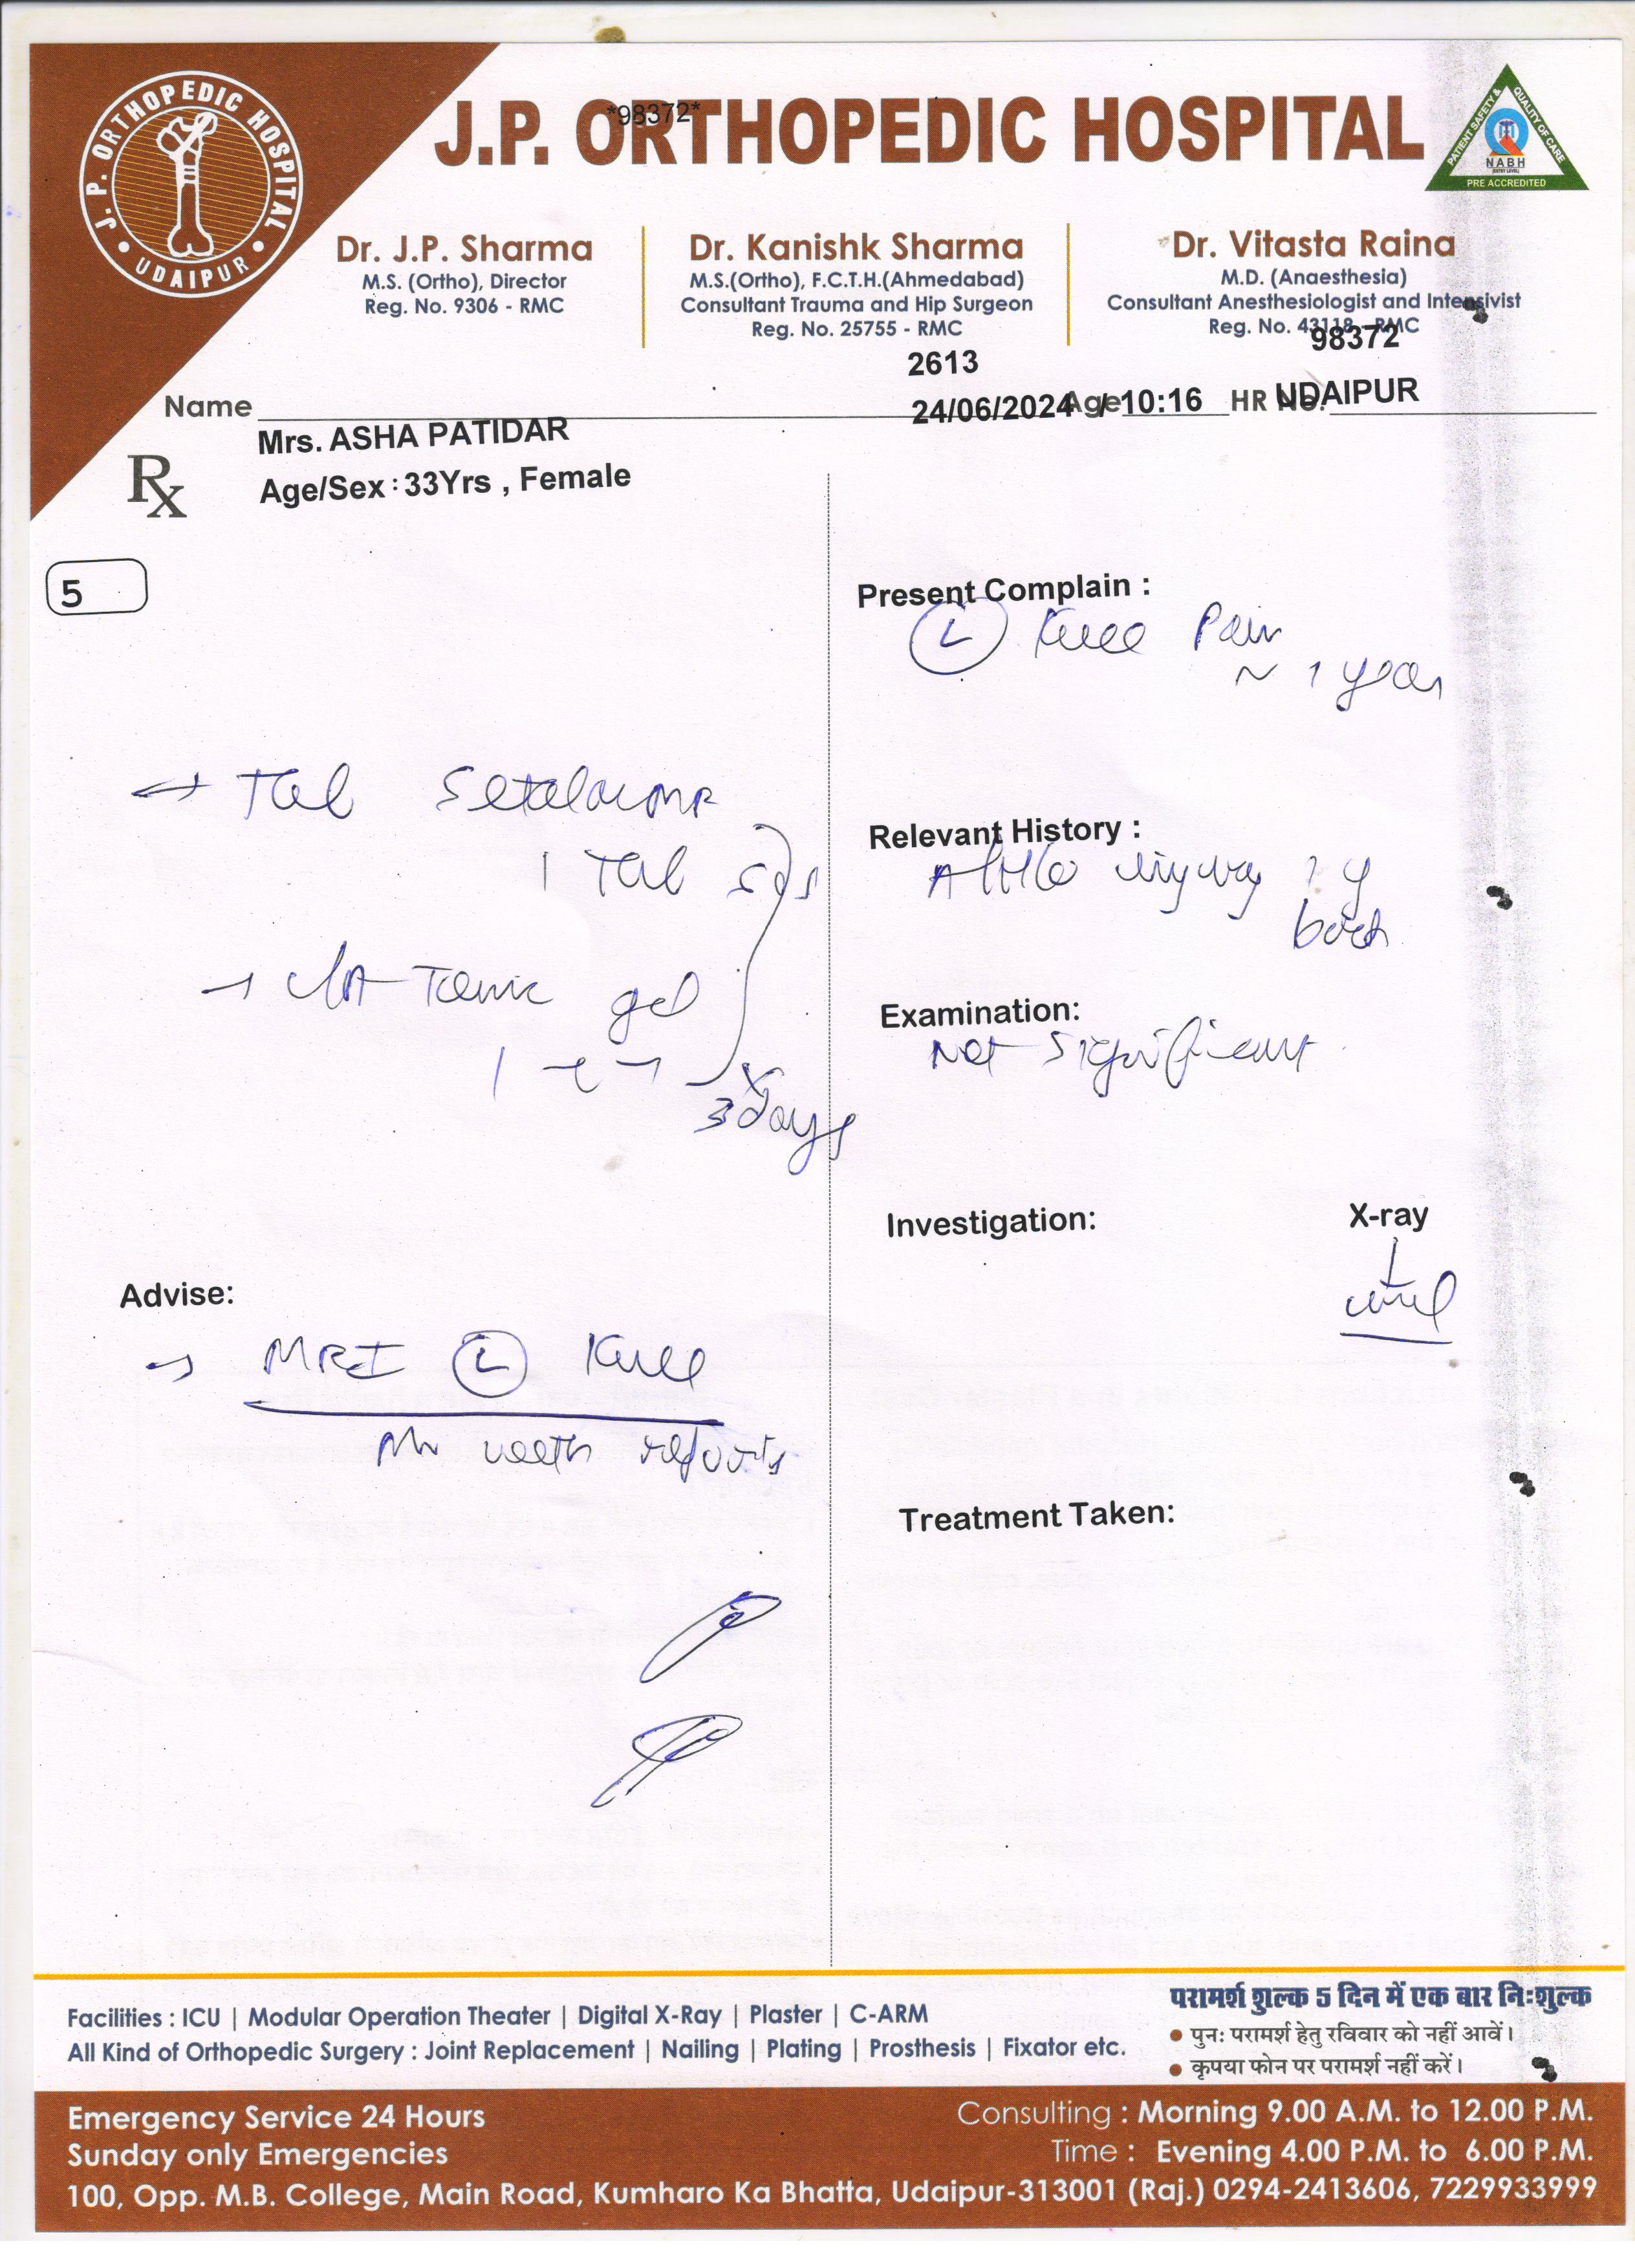 J.P. ORTHOPEDIC HOSPITAL
*98372*
J. P. ORTHOPEDIC HOSPITAL
• UDAIPUR •
PATIENT SAFETY & QUALITY OF CARE
NABH
(ENTRY LEVEL)
PRE ACCREDITED
Dr. J.P. Sharma
M.S. (Ortho), Director
Reg. No. 9306 - RMC
Dr. Kanishk Sharma
M.S.(Ortho), F.C.T.H.(Ahmedabad)
Consultant Trauma and Hip Surgeon
Reg. No. 25755 - RMC
Dr. Vitasta Raina
M.D. (Anaesthesia)
Consultant Anesthesiologist and Intensivist
Reg. No. 43118 - RMC
98372
2613
Name Age HR No.
24/06/2024 / 10:16 UDAIPUR
Mrs. ASHA PATIDAR
Rx
Age/Sex : 33Yrs , Female
5
Present Complain :
(L) Knee Pain
~ 1 year
Tab
1 Tab
Relevant History :
1 y
back
gel
3 days
Examination:
Not Significant
Investigation: X-ray
Advise:
MRI (L) Knee
with reports
Treatment Taken:
Facilities : ICU | Modular Operation Theater | Digital X-Ray | Plaster | C-ARM
All Kind of Orthopedic Surgery : Joint Replacement | Nailing | Plating | Prosthesis | Fixator etc.
परामर्श शुल्क 5 दिन में एक बार निःशुल्क
• पुनः परामर्श हेतु रविवार को नहीं आवें।
• कृपया फोन पर परामर्श नहीं करें।
Emergency Service 24 Hours
Sunday only Emergencies
Consulting : Morning 9.00 A.M. to 12.00 P.M.
Time : Evening 4.00 P.M. to 6.00 P.M.
100, Opp. M.B. College, Main Road, Kumharo Ka Bhatta, Udaipur-313001 (Raj.) 0294-2413606, 7229933999